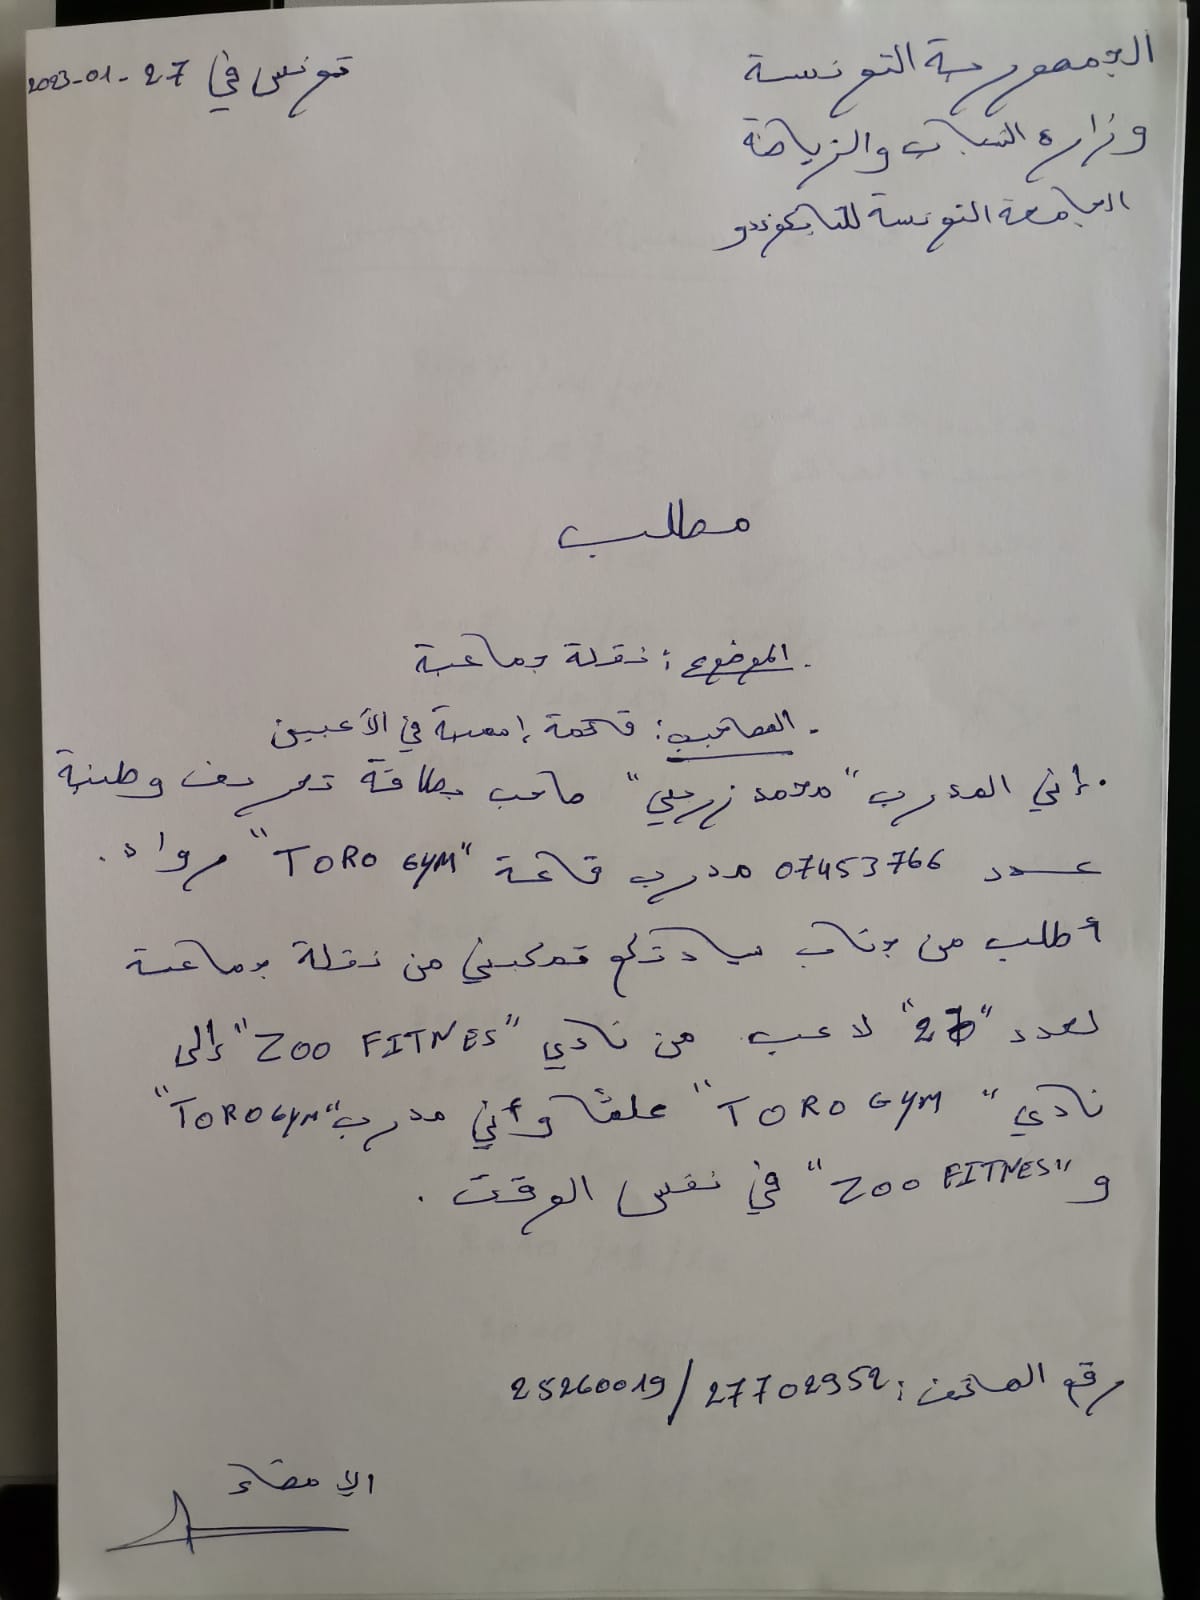 الجمهورية التونسية
تونس في 27-01-2023
وزارة الشباب والرياضة
الجامعة التونسية للتايكوندو
مطلب
. الموضوع : نقلة جماعية
. المصاحيب : قائمة إمضية في الاعبين
. إني المدرب "محمد زريبي" صاحب بطاقة تعريف وطنية
عدد 07453766 مدرب قاعة "TORO GYM" رواد.
أطلب من جناب سيادتكم تمكيني من نقلة جماعية
لعدد "26" لاعب من نادي "ZOO FITNES" إلى
نادي "TORO GYM" علمًا وأني مدرب "TORO GYM"
و "ZOO FITNES" في نفس الوقت .
رقم الهاتف : 27702952 / 25260019
الإمضاء